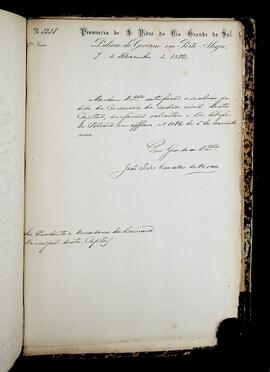 Provincia de S. Pedro do Rio Grande do Sul.
Palacio do Governo em Porto Alegre,
7 de Dezembro de 187
Mandem Vmcês satisfazer o incluso pe
dido do Carcereiro da cadeia civil desta
Capital, conforme solicitou o Dr. Chefe
de Policia em officio nº 1086 de 5 do corrente
mez
Deus Guarde a Vmcês
João Pedro Carvalho de Moraes
Srs. Presidente e Vereadores da Camara
Municipal desta Capital